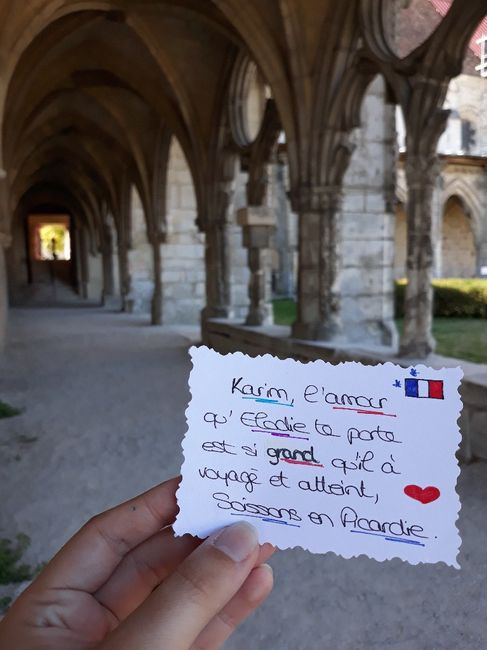 Karim, l'amour
qu'Elodie te porte
est si grand qu'il à
voyagé et atteint,
Soissons en Picardie.